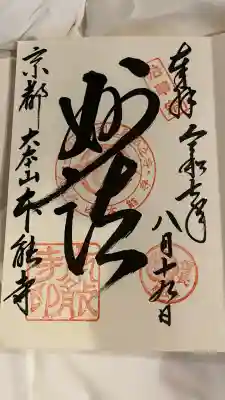 奉拝
令和七年
八月十九日
妙法
京都 大本山本能寺